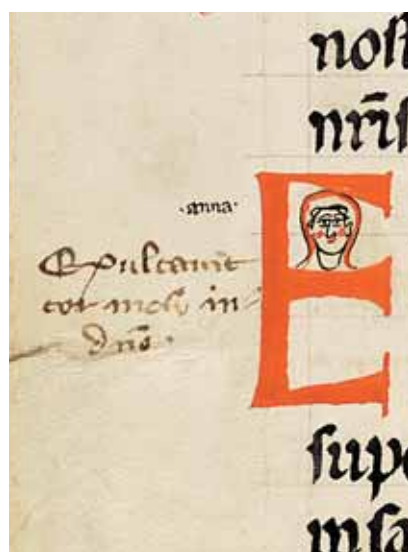 nost
nr̄is
·anna·
E
Exultauit
cor meū in
dn̄o·
supe
in sa